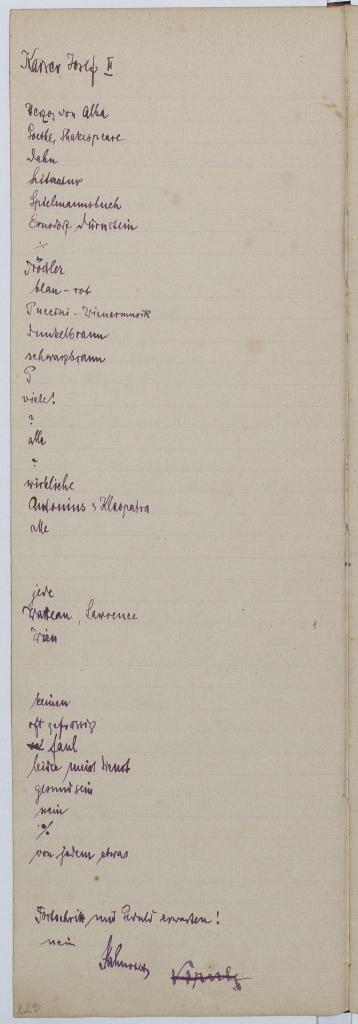 Kaiser Josef II
Herzog von Alba
Goethe, Shakespeare
Dahn
Literatur
Spielmannsbuch
Ernsdorf Dürnstein
./.
Trödler
blau - rot
Puccini - Wienermusik
dunkelbraun
schwarzbraun
?
viele!
?
alle
?
wirkliche
Antonius & Kleopatra
alle
jede
Watteau, Lawrence
Wien
keinen
oft gefrässig
faul
leider meist Dienst
gesund sein
nein
./.
von jedem etwas
Fortschritt und Geduld erwarten!
nein
229